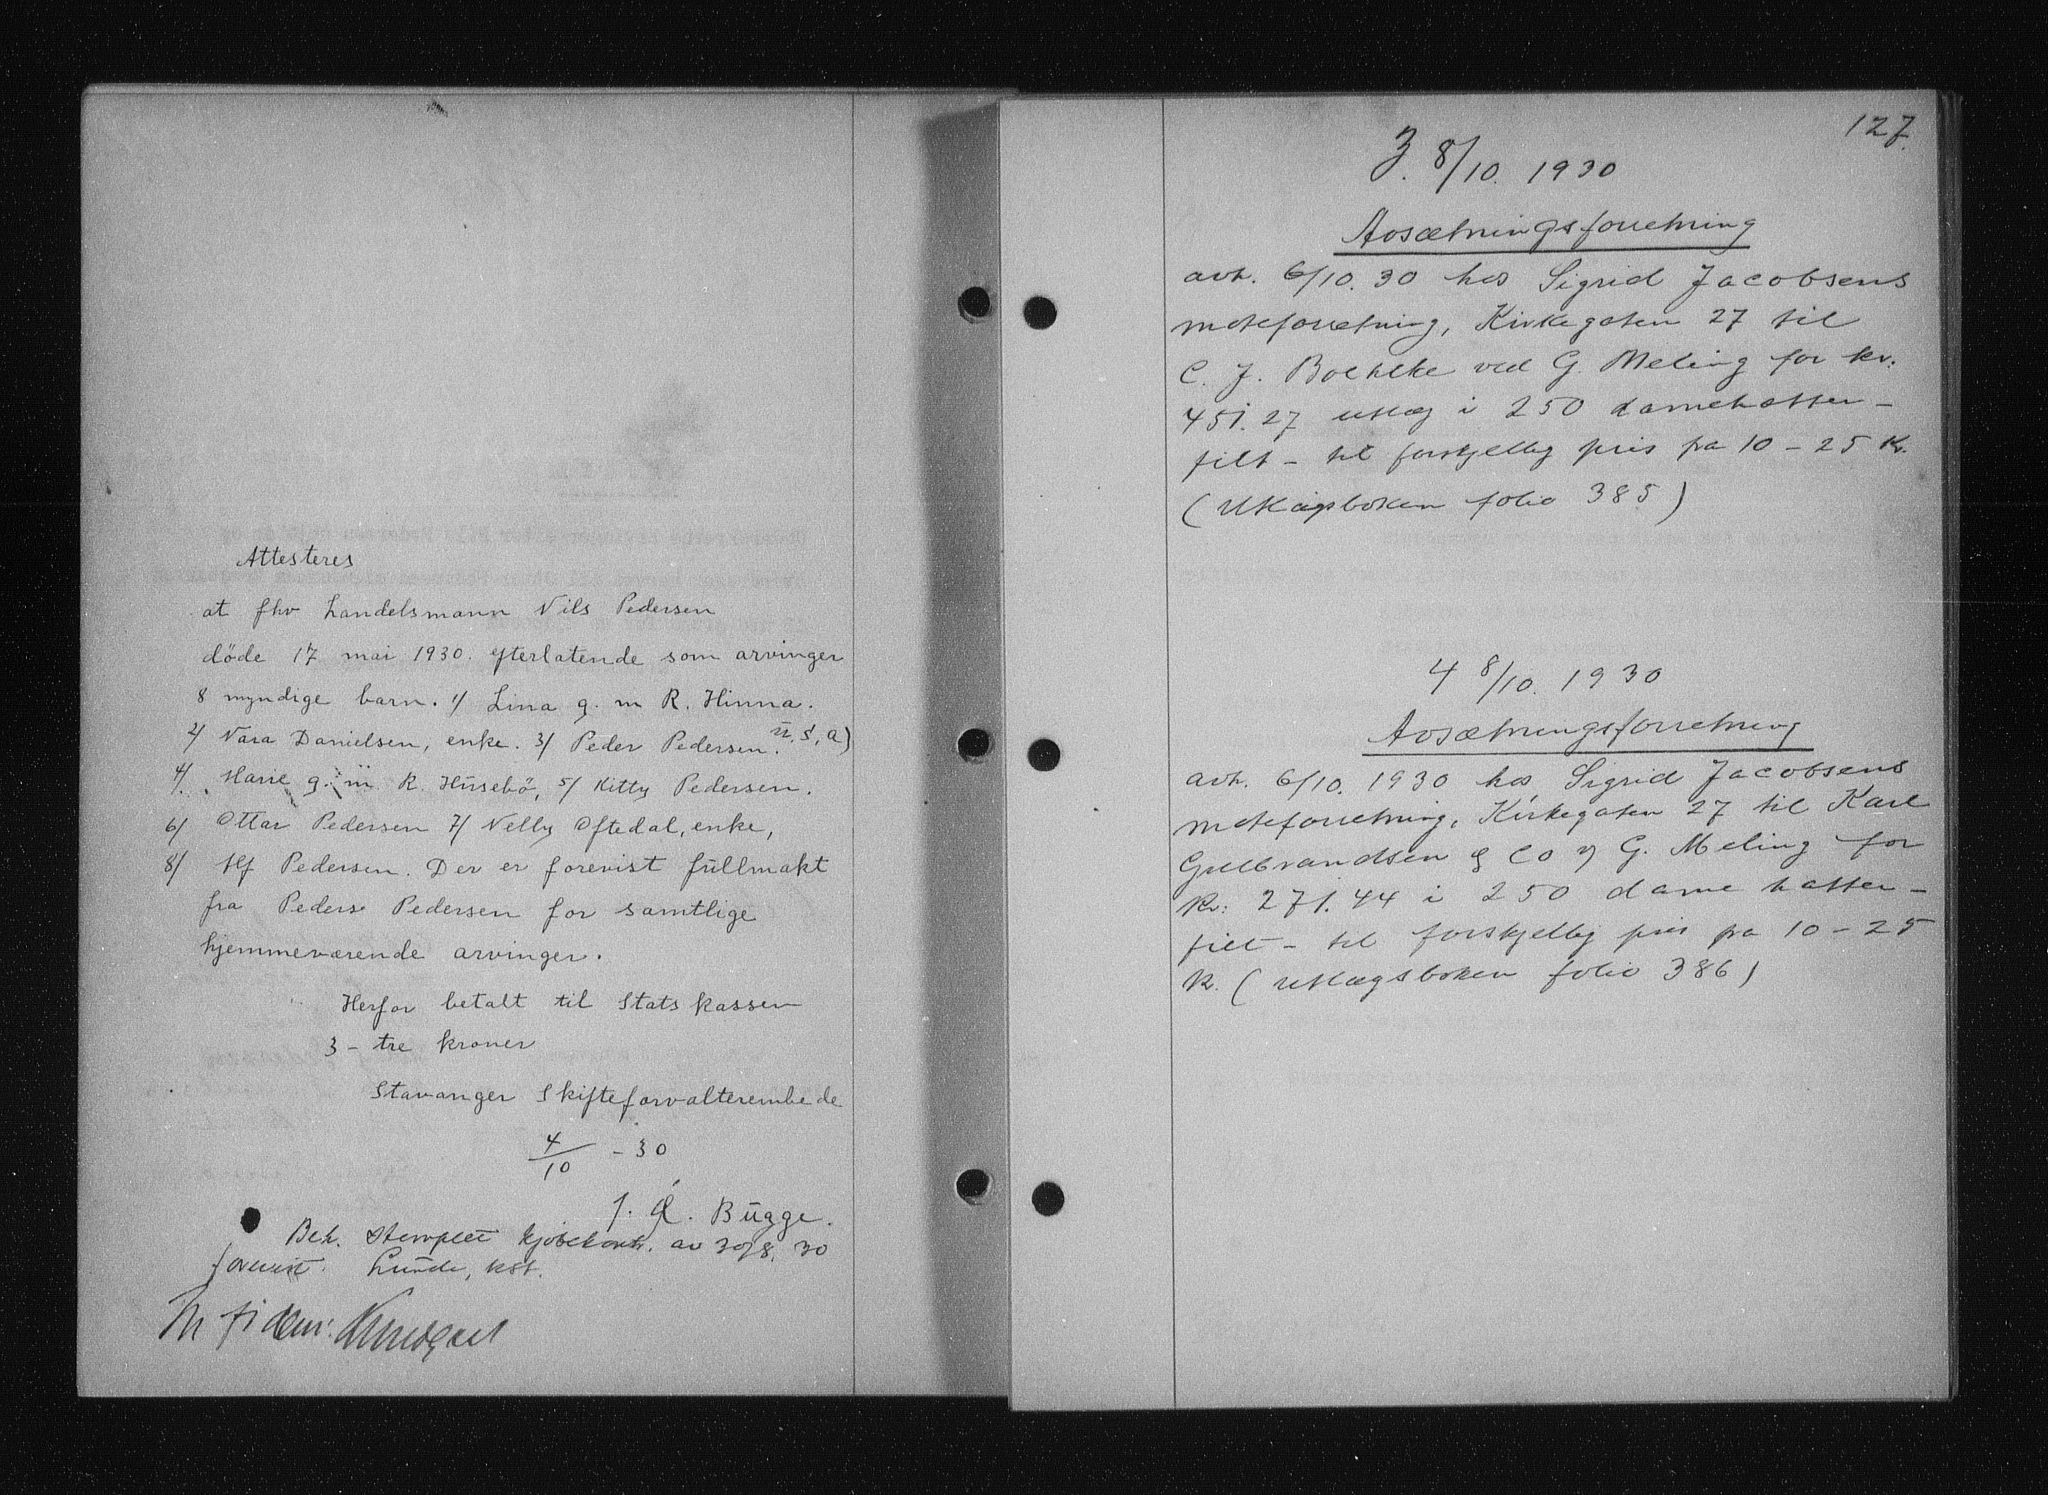 Attesteres
at fhv handelsmann Nils Pedersen
døde 17 mai 1930. efterlatende som arvinger
8 myndige barn. 1/ Lina g. m R. Hinna.
2/ Nara Danielsen, enke. 3/ Peder Pedersen. U.S,a)
4/. Marie g. m R. Husebö, 5/ Kitty Pedersen.
6/ Ottar Pedersen 7/ Nelly Oftedal, enke,
8/ Alf Pedersen. Der er forevist fullmakt
fra Peders Pedersen for samtlige
hjemmeværende arvinger.
Herfor betalt til Statskassen
3 - tre kroner
Stavanger Skifteforvalterembede
4/10 - 30
Bugge.
Beh. Stemplet kjöbekontr. av 30/8. 30
forevist. Lunde, kst.
In fidem:
127.
3. 8/10. 1930
Avsætningsforretning
avh. 6/10. 30 hos Sigrid Jacobsens
moteforretning, Kirkegaten 27 til
C. J. Boehlke ved G. Meling for kr.
451.27 utlæg i 250 damehatter -
filt - til forskjellig pris fra 10 - 25 Kr.
(Utlægsboken folio 385)
4 8/10. 1930
Avsætningsforretning
avh. 6/10. 1930 hos Sigrid Jacobsens
moteforretning, Kirkegaten 27 til Karl
Gulbrandsen & Co v/ G. Meling for
kr: 271.44 i 250 dame hatter -
filt - til forskjellig pris fra 10 - 25
kr. (utlægsboken folio 386)